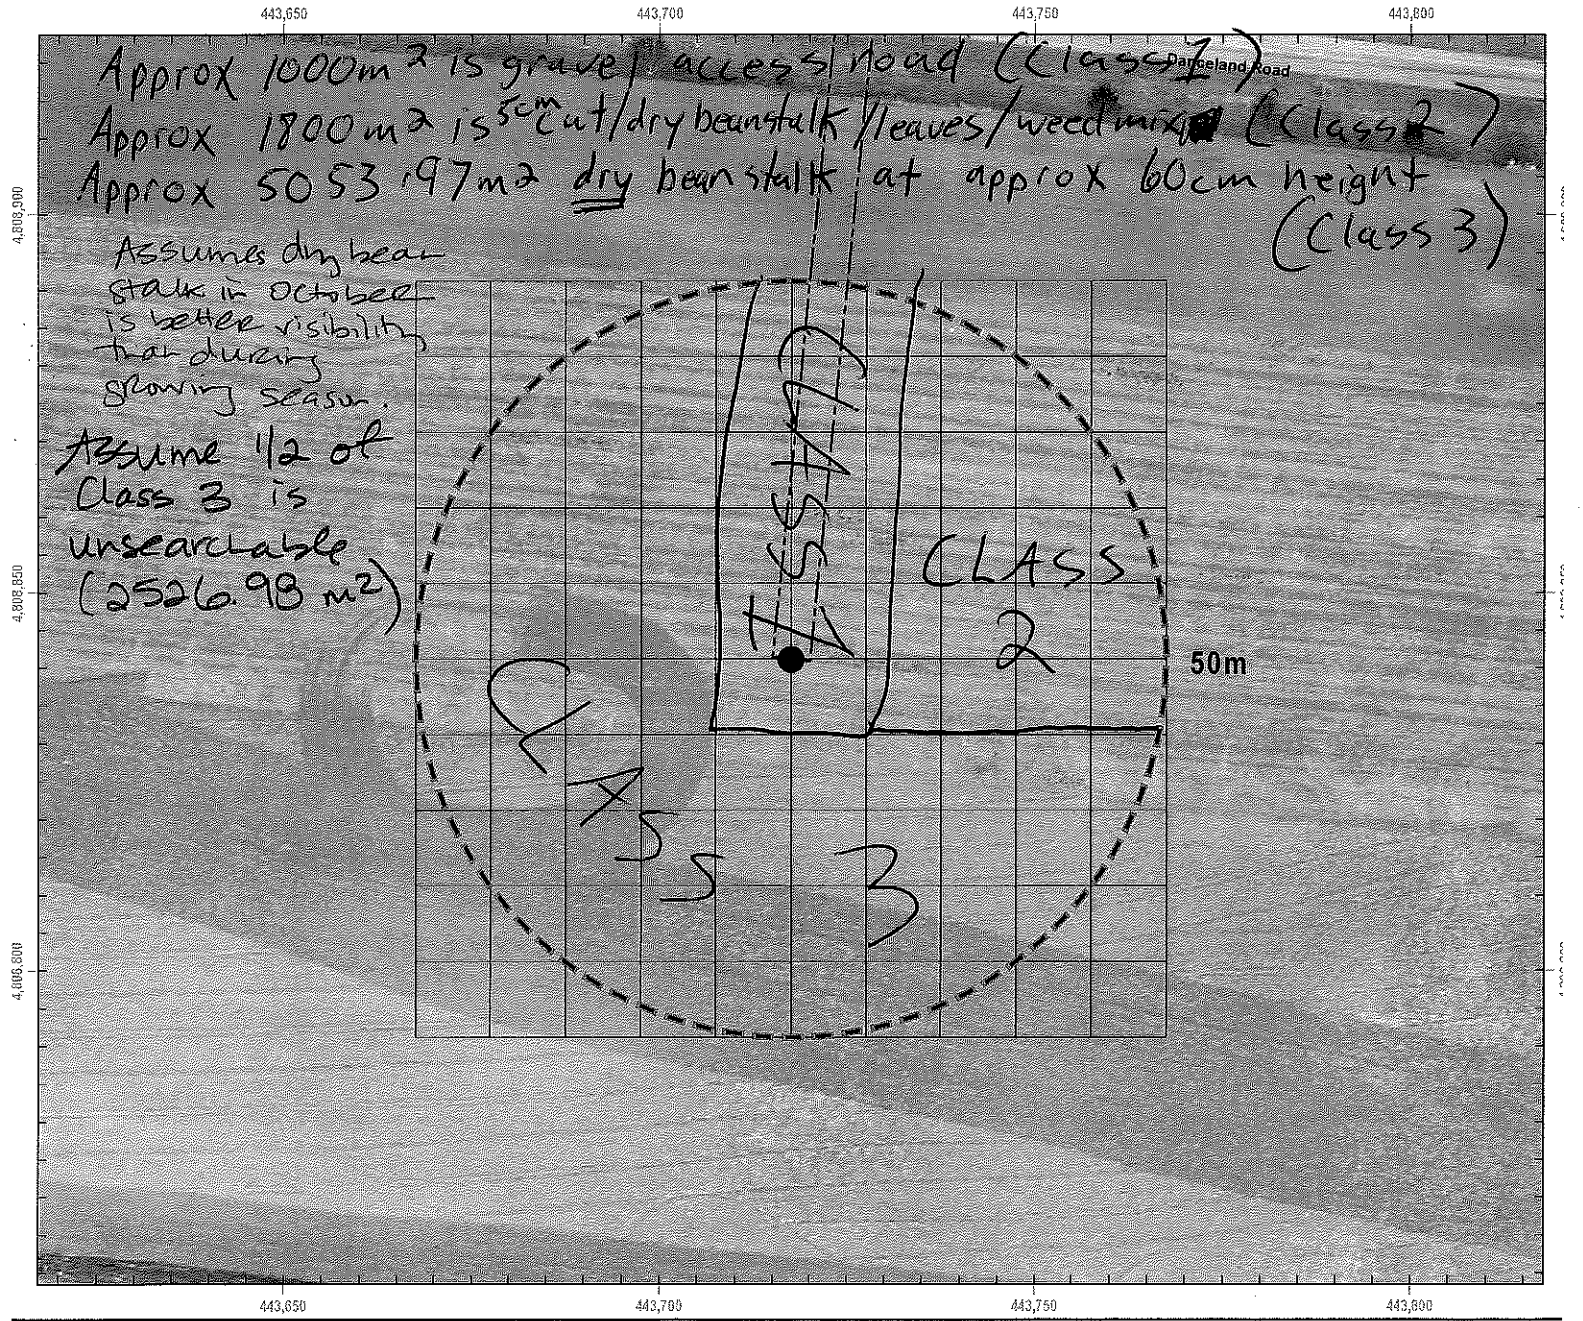 443,650 443,700 443,750 443,800
Approx 1000m² is gravel access road (Class 1)
Dangeland Road
Approx 1800m² is 5cm cut/dry beanstalk/leaves/weed mix (Class 2)
Approx 5053.97m² dry beanstalk at approx 60cm height
(Class 3)
4,808,900
Assumes dry bean
stalk in October
is better visibility
than during
growing season.
Assume 1/2 of
Class 3 is
unsearchable
(2526.98 m²)
4,808,850
CLASS 1
CLASS
2
50m
CLASS 3
4,808,800
443,650 443,700 443,750 443,800